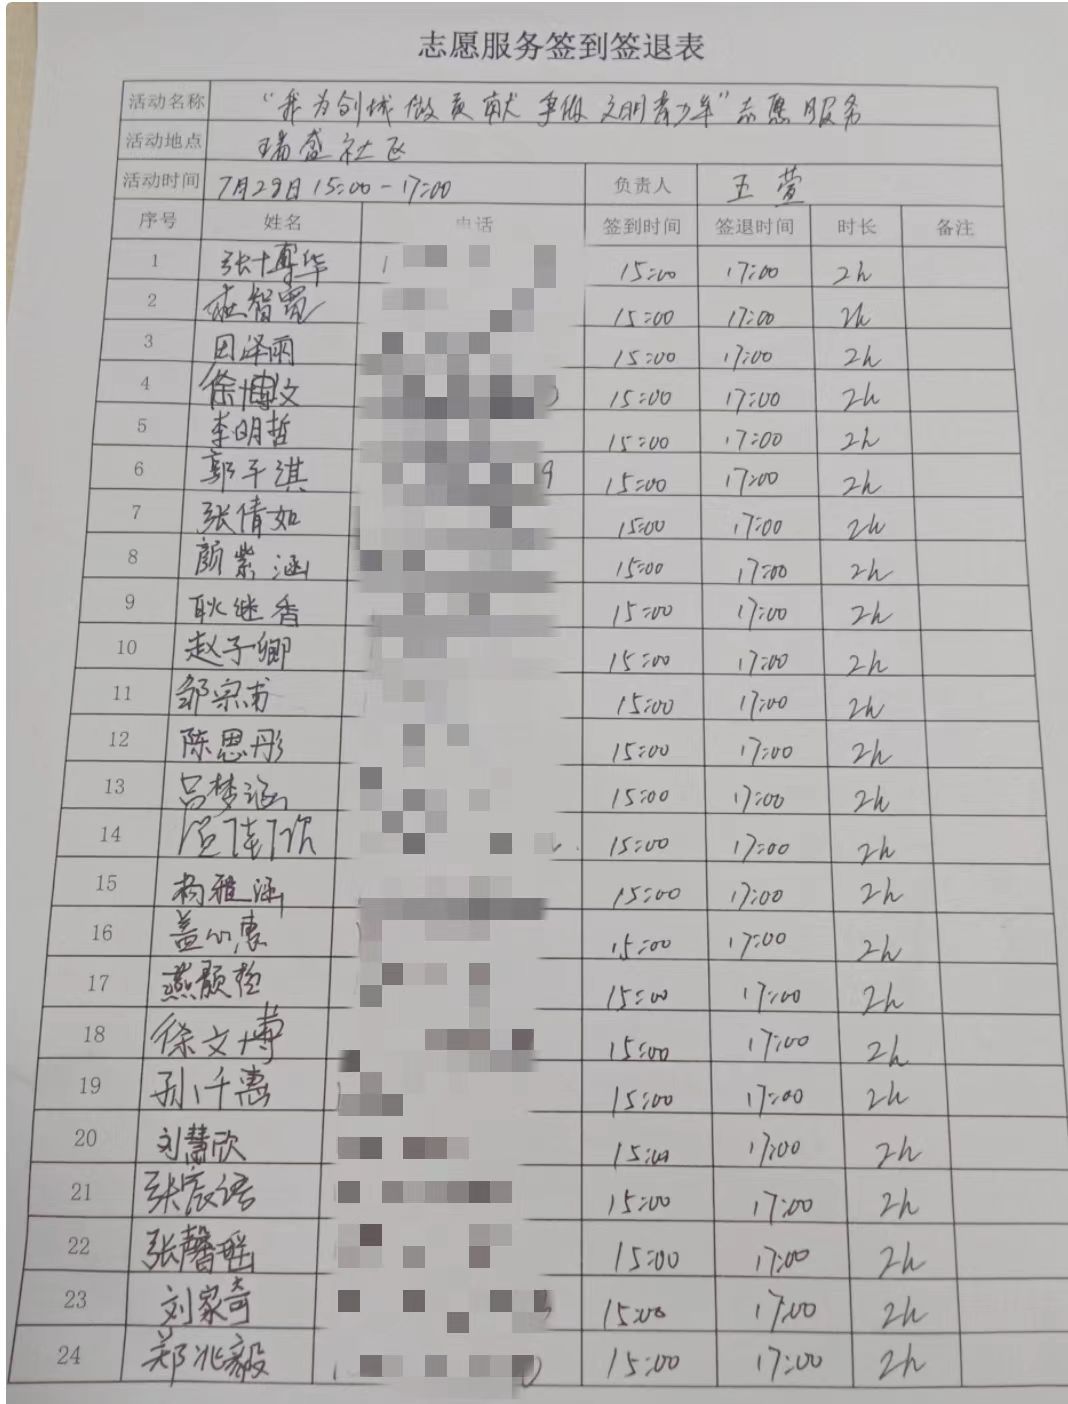 志愿服务签到签退表
活动名称 “我为创城做贡献 争做文明青少年”志愿服务
活动地点 瑞盛社区
活动时间 7月29日 15:00-17:00 负责人 王萱
序号 姓名 电话 签到时间 签退时间 时长 备注
1 张博华 1 15:00 17:00 2h
2 智 15:00 17:00 2h
3 田泽雨 15:00 17:00 2h
4 徐博文 15:00 17:00 2h
5 李明哲 15:00 17:00 2h
6 郭于淇 9 15:00 17:00 2h
7 张倩如 15:00 17:00 2h
8 颜紫涵 15:00 17:00 2h
9 耿继香 15:00 17:00 2h
10 赵子卿 15:00 17:00 2h
11 邹宗甫 15:00 17:00 2h
12 陈思彤 15:00 17:00 2h
13 吕梦涵 15:00 17:00 2h
14 15:00 17:00 2h
15 杨雅涵 15:00 17:00 2h
16 盖心惠 15:00 17:00 2h
17 燕颢 15:00 17:00 2h
18 徐文博 15:00 17:00 2h
19 孙千惠 15:00 17:00 2h
20 刘慧欣 15:00 17:00 2h
21 张宸语 15:00 17:00 2h
22 张馨瑶 15:00 17:00 2h
23 刘家奇 15:00 17:00 2h
24 郑兆毅 15:00 17:00 2h